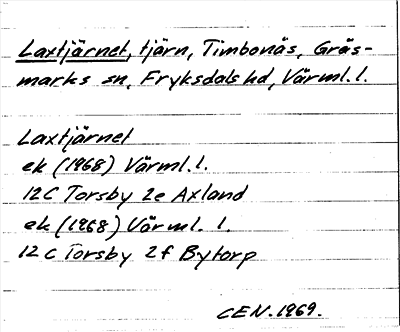 Laxtjärnet, tjärn, Timbonäs, Gräs-
marks sn, Fryksdals hd, Värml. l.
Laxtjärnet
ek (1968) Värml. l.
12C Torsby 2e Axland
ek (1968) Värml. l.
12C Torsby 2f Bytorp
CEN. 1969.